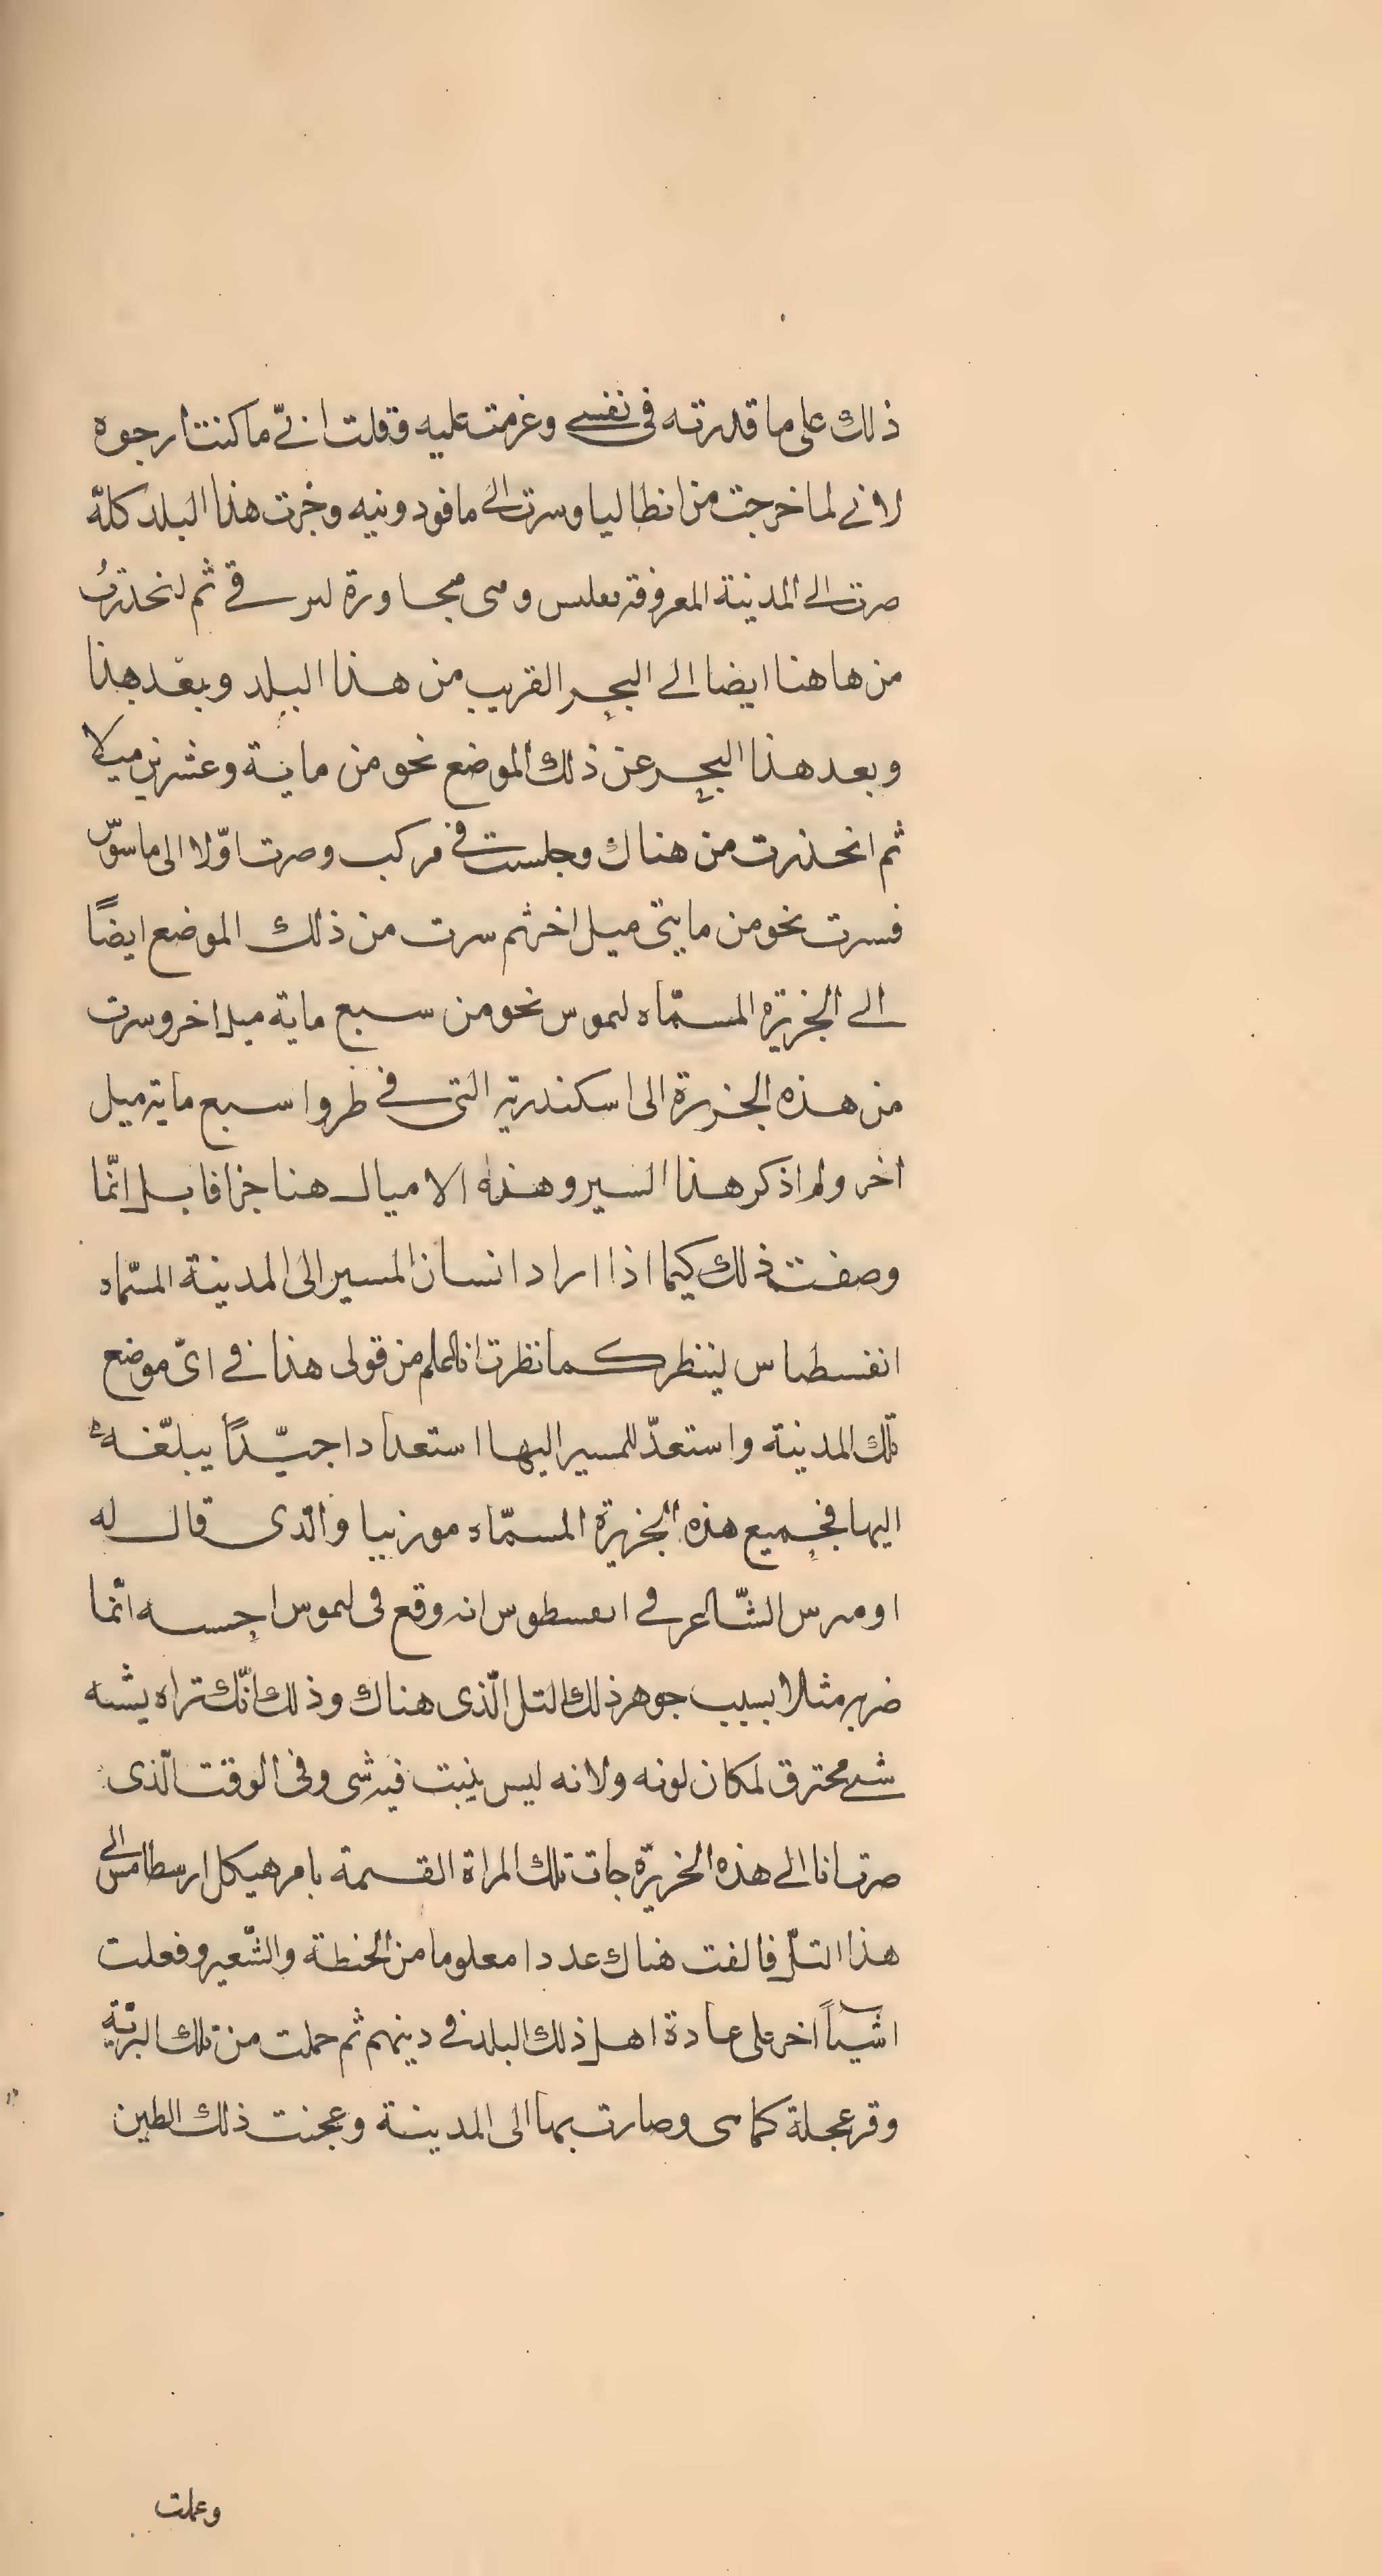 ذلك على ما قدرته فى نفسى وغرمت عليه وقلت انّى ما كنت ارجوه
لانى لما خرجت من انطاليا وسرت الى ماقودونيه وخرت هذا البلد كلّه
صرت الى المدينة المعروفة ڡعلٮس وهى مجاورة لٮرقى ثم انحذرتُ
من هاهنا ايضا الى البحر القريب من هذا البلد وبعد هذا
وبعد هذا البحر عن ذلك الموضع نحو من ماية وعشرين ميلا
ثم انحذرت من هناك وجلست فى مركب وصرت اوّلا الى ماسوّس
فسرت نحو من مايتى ميل اخر ثم سرت من ذلك الموضع ايضًا
الى الجزيرة المسمّاه لىموس نحو من سبع ماية ميل اخر وسرت
من هذه الجزيرة الى اسكندرية التى فى طروا سبع ماية ميل
اخر ولم اذكر هذا السير وهذه الاميال هنا جزافا بل انّما
وصفت ذلك كيما اذا اراد انسان المسير الى المدينة المسّماه
انفسطياس لينظر كما نظرت انا لعلم من قولى هذا فى اىّ موضع
تلك المدينة واستعدّ للمسير اليها استعدادا جيّدًا يبلّغه
اليها فجميع هذه الجزيرة المسمّاه مورنيا والّدى قال له
اومىرس الشّاعر فى اىڡسطوس انه وقع فى لىموس احسه انّما
ضربه مثلا بسبب جوهر ذلك التل الّذى هناك وذلك انّك تراه يشبه
شى محترق لمكان لونه ولانه ليس ينبت فيه شى وفى الوقت الّذى
صرت انا الى هذه الجزيرة جات تلك المراة القيمة بامر هيكل ارسطامس الى
هذا التلّ فالقت هناك عددا معلوما من الحنطة والشّعير وفعلت
اشياً اخر على عادة اهل ذلك البلد فى دينهم ثم حملت من تلك التربة
وقر عجلة كما هى وصارت بها الى المدينة وعجنت ذلك الطين
وعملت